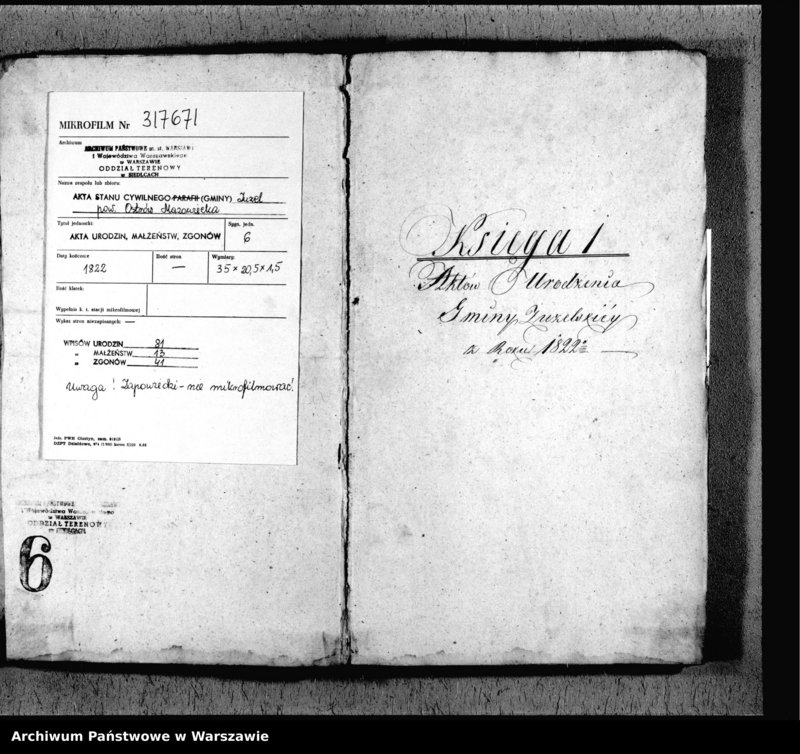 MIKROFILM Nr 317671
Archiwum
ARCHIWUM PAŃSTWOWE m. st. WARSZAWY
i Województwa Warszawskiego
w WARSZAWIE
ODDZIAŁ TERENOWY
w SIEDLCACH
Nazwa zespołu lub zbioru:
AKTA STANU CYWILNEGO PARAFII (GMINY) Zuzel
pow. Ostrów Mazowiecka
Tytuł jednostki: Sygn. jedn.
AKTA URODZIN, MAŁŻEŃSTW, ZGONÓW 6
Daty końcowe Ilość stron Wymiary:
1822 — 35 × 20,5 × 1,5
Ilość klatek:
Wypełnia k. t. stacji mikrofilmowej
Wykaz stron niezapisanych: —
WPISÓW URODZIN 81
„ MAŁŻEŃSTW 13
„ ZGONÓW 41
Uwaga! Zapowiedzi - nie mikrofilmować!
i Województwa
w WARSZAWIE
ODDZIAŁ TERENOWY
w SIEDLCACH
6
Księga 1
Aktów Urodzenia
Gminy Zuzelskiéy
z Roku 1822
Archiwum Państwowe w Warszawie